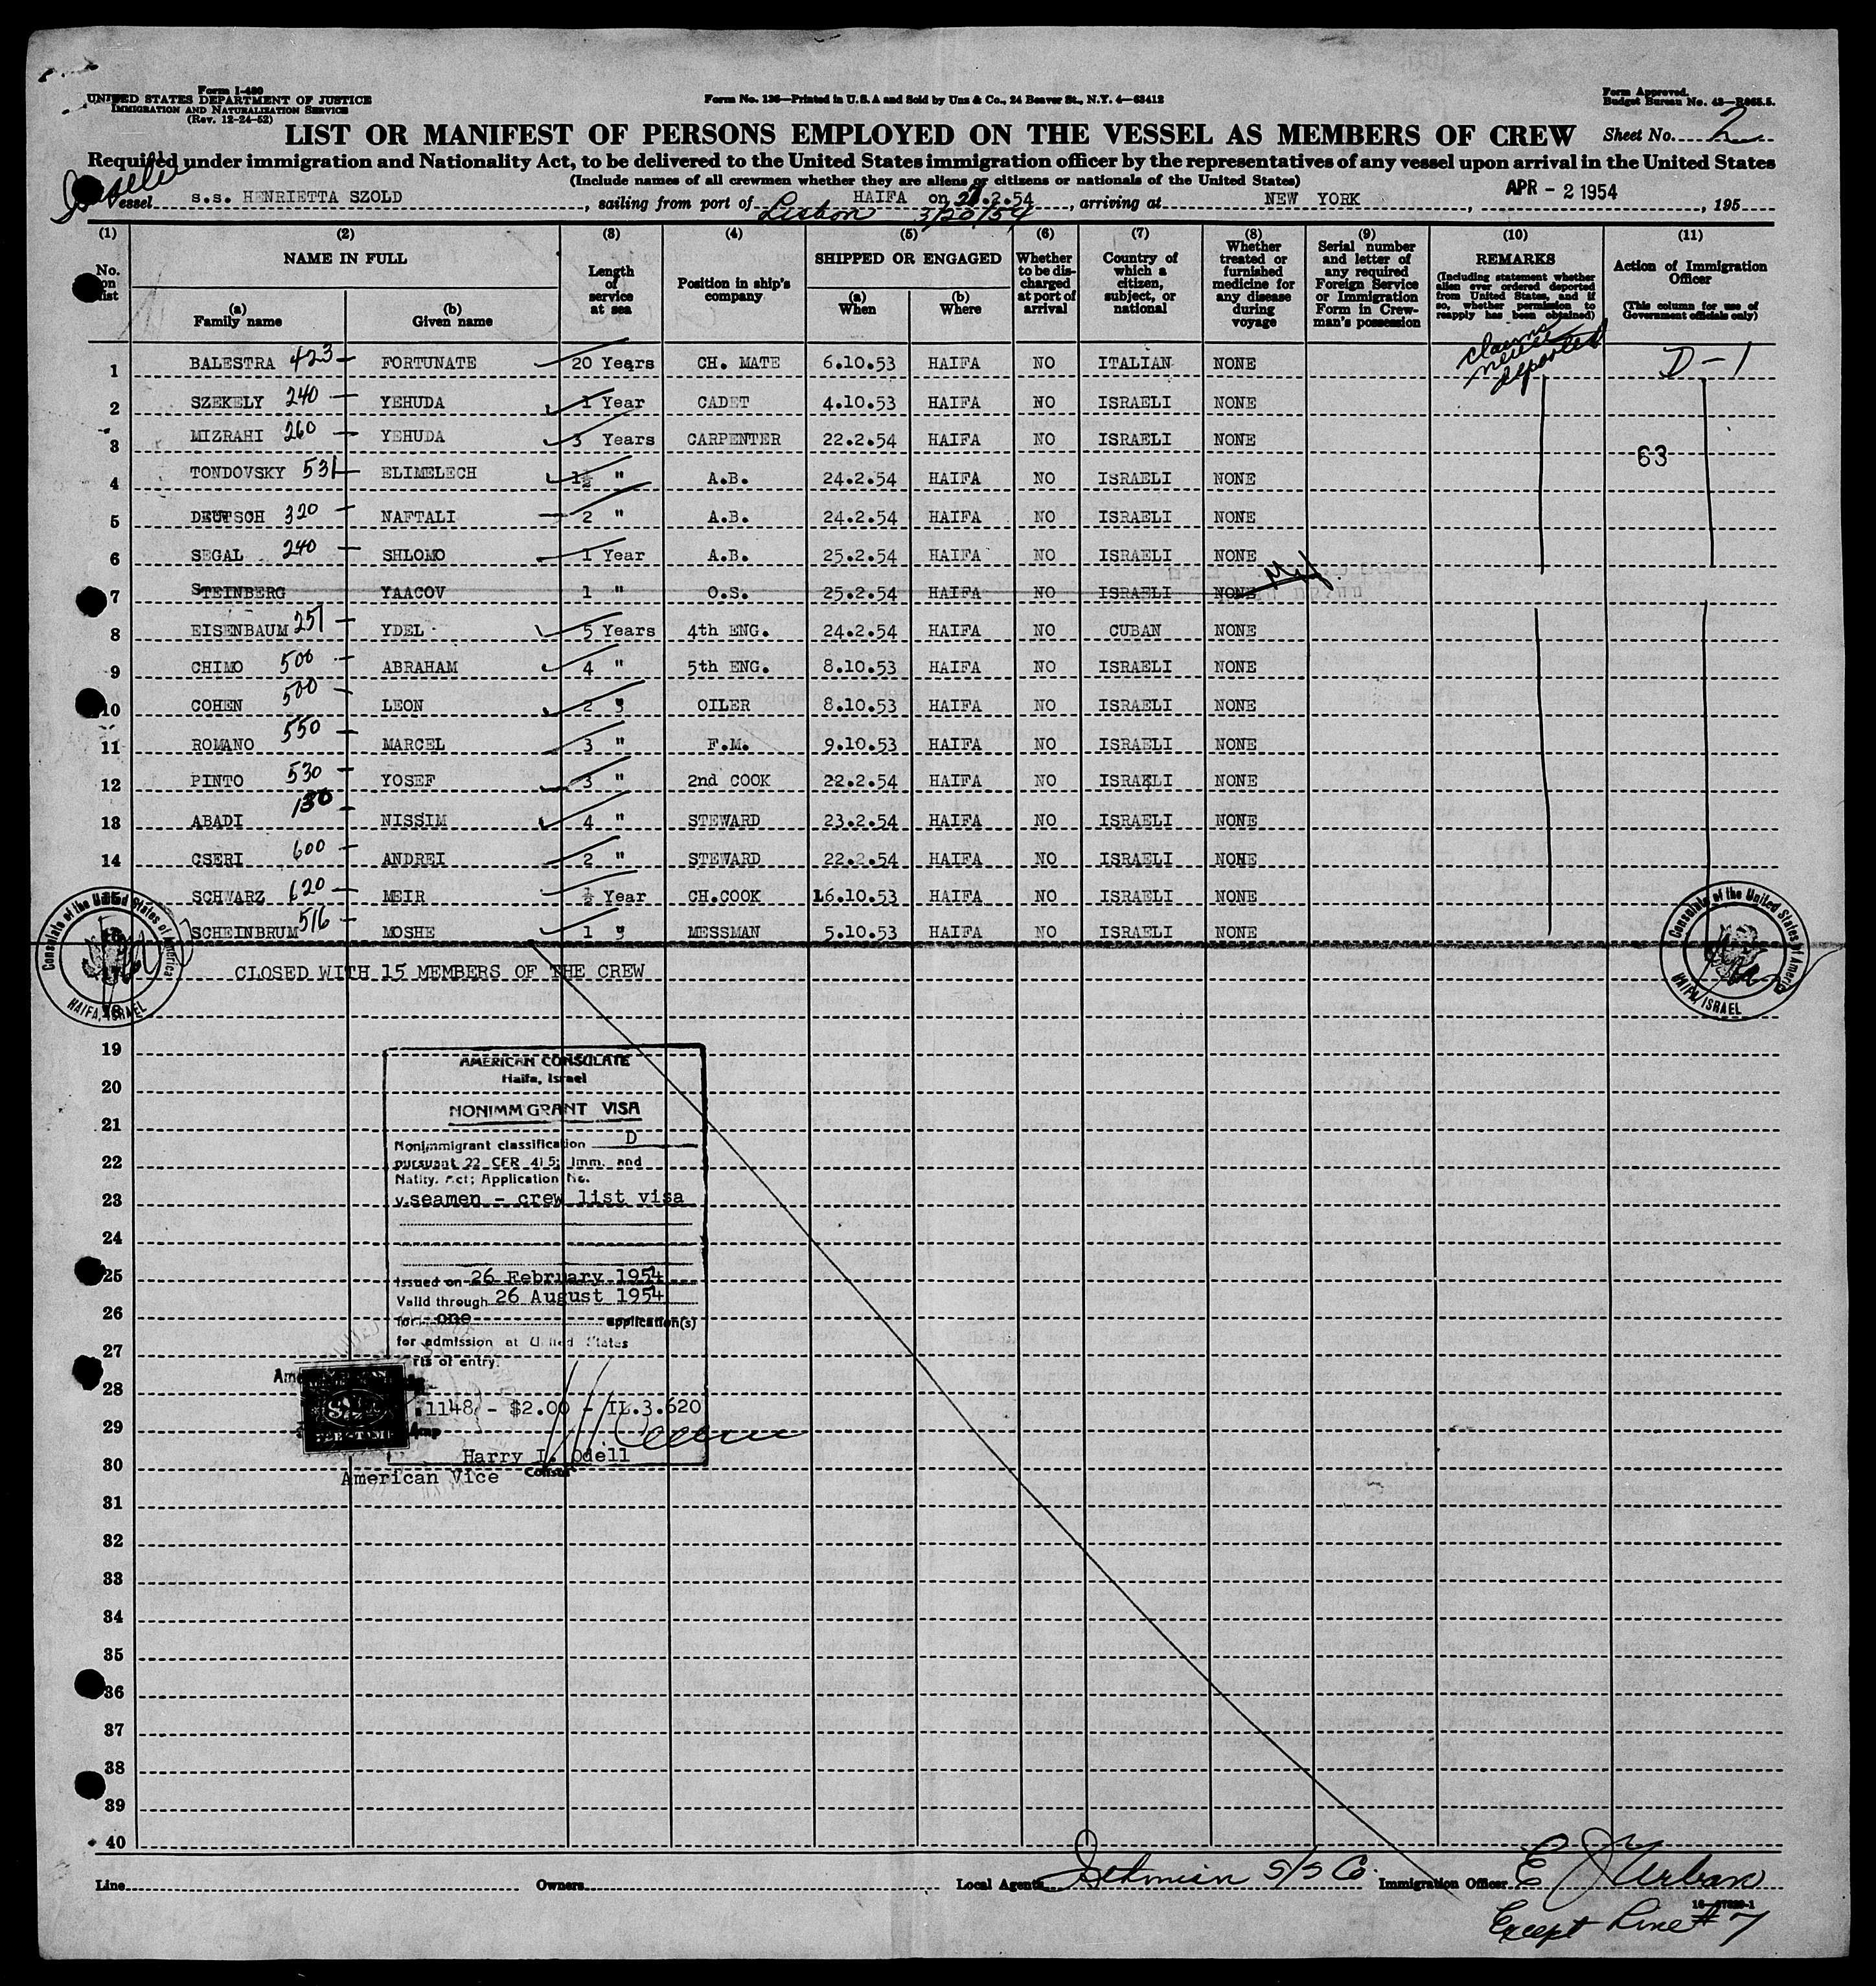 Form I-480
UNITED STATES DEPARTMENT OF JUSTICE
IMMIGRATION AND NATURALIZATION SERVICE
(Rev. 12-24-52)
Form No. 136—Printed in U.S.A and Sold by Unz & Co., 24 Beaver St., N.Y. 4—63412
Form Approved.
Budget Bureau No. 43—R065.5.
LIST OR MANIFEST OF PERSONS EMPLOYED ON THE VESSEL AS MEMBERS OF CREW
Sheet No. 2
Required under immigration and Nationality Act, to be delivered to the United States immigration officer by the representatives of any vessel upon arrival in the United States
(Include names of all crewmen whether they are aliens or citizens or nationals of the United States)
Vessel s.s. HENRIETTA SZOLD, sailing from port of HAIFA on 2.54, arriving at NEW YORK, APR - 2 1954, 195
Lisbon 3/20/54
(1) (2) (3) (4) (5) (6) (7) (8) (9) (10) (11)
No. on list
NAME IN FULL
(a) Family name
(b) Given name
Length of service at sea
Position in ship's company
SHIPPED OR ENGAGED
(a) When
(b) Where
Whether to be discharged at port of arrival
Country of which a citizen, subject, or national
Whether treated or furnished medicine for any disease during voyage
Serial number and letter of any required Foreign Service or Immigration Form in Crewman's possession
REMARKS
(Including statement whether alien ever ordered deported from United States, and if so, whether permission to reapply has been obtained)
Action of Immigration Officer
(This column for use of Government officials only)
claims never deported
D-1
1 BALESTRA 423 FORTUNATE 20 Years CH. MATE 6.10.53 HAIFA NO ITALIAN NONE
2 SZEKELY 240 YEHUDA 1 Year CADET 4.10.53 HAIFA NO ISRAELI NONE
3 MIZRAHI 260 YEHUDA 3 Years CARPENTER 22.2.54 HAIFA NO ISRAELI NONE
63
4 TONDOVSKY 531 ELIMELECH 1½ " A.B. 24.2.54 HAIFA NO ISRAELI NONE
5 DEUTSCH 320 NAFTALI 2 " A.B. 24.2.54 HAIFA NO ISRAELI NONE
6 SEGAL 240 SHLOMO 1 Year A.B. 25.2.54 HAIFA NO ISRAELI NONE
7 STEINBERG YAACOV 1 " O.S. 25.2.54 HAIFA NO ISRAELI NONE
8 EISENBAUM 251 YDEL 5 Years 4th ENG. 24.2.54 HAIFA NO CUBAN NONE
9 CHIMO 500 ABRAHAM 4 " 5th ENG. 8.10.53 HAIFA NO ISRAELI NONE
10 COHEN 500 LEON 2 " OILER 8.10.53 HAIFA NO ISRAELI NONE
11 ROMANO 550 MARCEL 3 " F.M. 9.10.53 HAIFA NO ISRAELI NONE
12 PINTO 530 YOSEF 3 " 2nd COOK 22.2.54 HAIFA NO ISRAELI NONE
13 ABADI 130 NISSIM 4 " STEWARD 23.2.54 HAIFA NO ISRAELI NONE
14 CSERI 600 ANDREI 2 " STEWARD 22.2.54 HAIFA NO ISRAELI NONE
SCHWARZ 620 MEIR ½ Year CH.COOK 16.10.53 HAIFA NO ISRAELI NONE
SCHEINBRUM 516 MOSHE 1 " MESSMAN 5.10.53 HAIFA NO ISRAELI NONE
Consulate of the United States of America
HAIFA, ISRAEL
Consulate of the United States of America
HAIFA, ISRAEL
CLOSED WITH 15 MEMBERS OF THE CREW
19
20
21
22
23
24
25
26
27
28
29
30
31
32
33
34
35
36
37
38
39
40
AMERICAN CONSULATE
Haifa, Israel
NONIMMIGRANT VISA
Nonimmigrant classification D
pursuant 22 CFR 41.5; Imm. and
Natlty. Act; Application No.
v.seamen - crew list visa
Issued on 26 February 1954
Valid through 26 August 1954
for one application(s)
for admission at United States
rts of entry.
1148 - $2.00 - IL.3.620
Harry I. Odell
American Vice Consul
Line
Owners
Local Agents S/S Co.
Immigration Officer E J Urban
16—67829-1
Except Line # 7